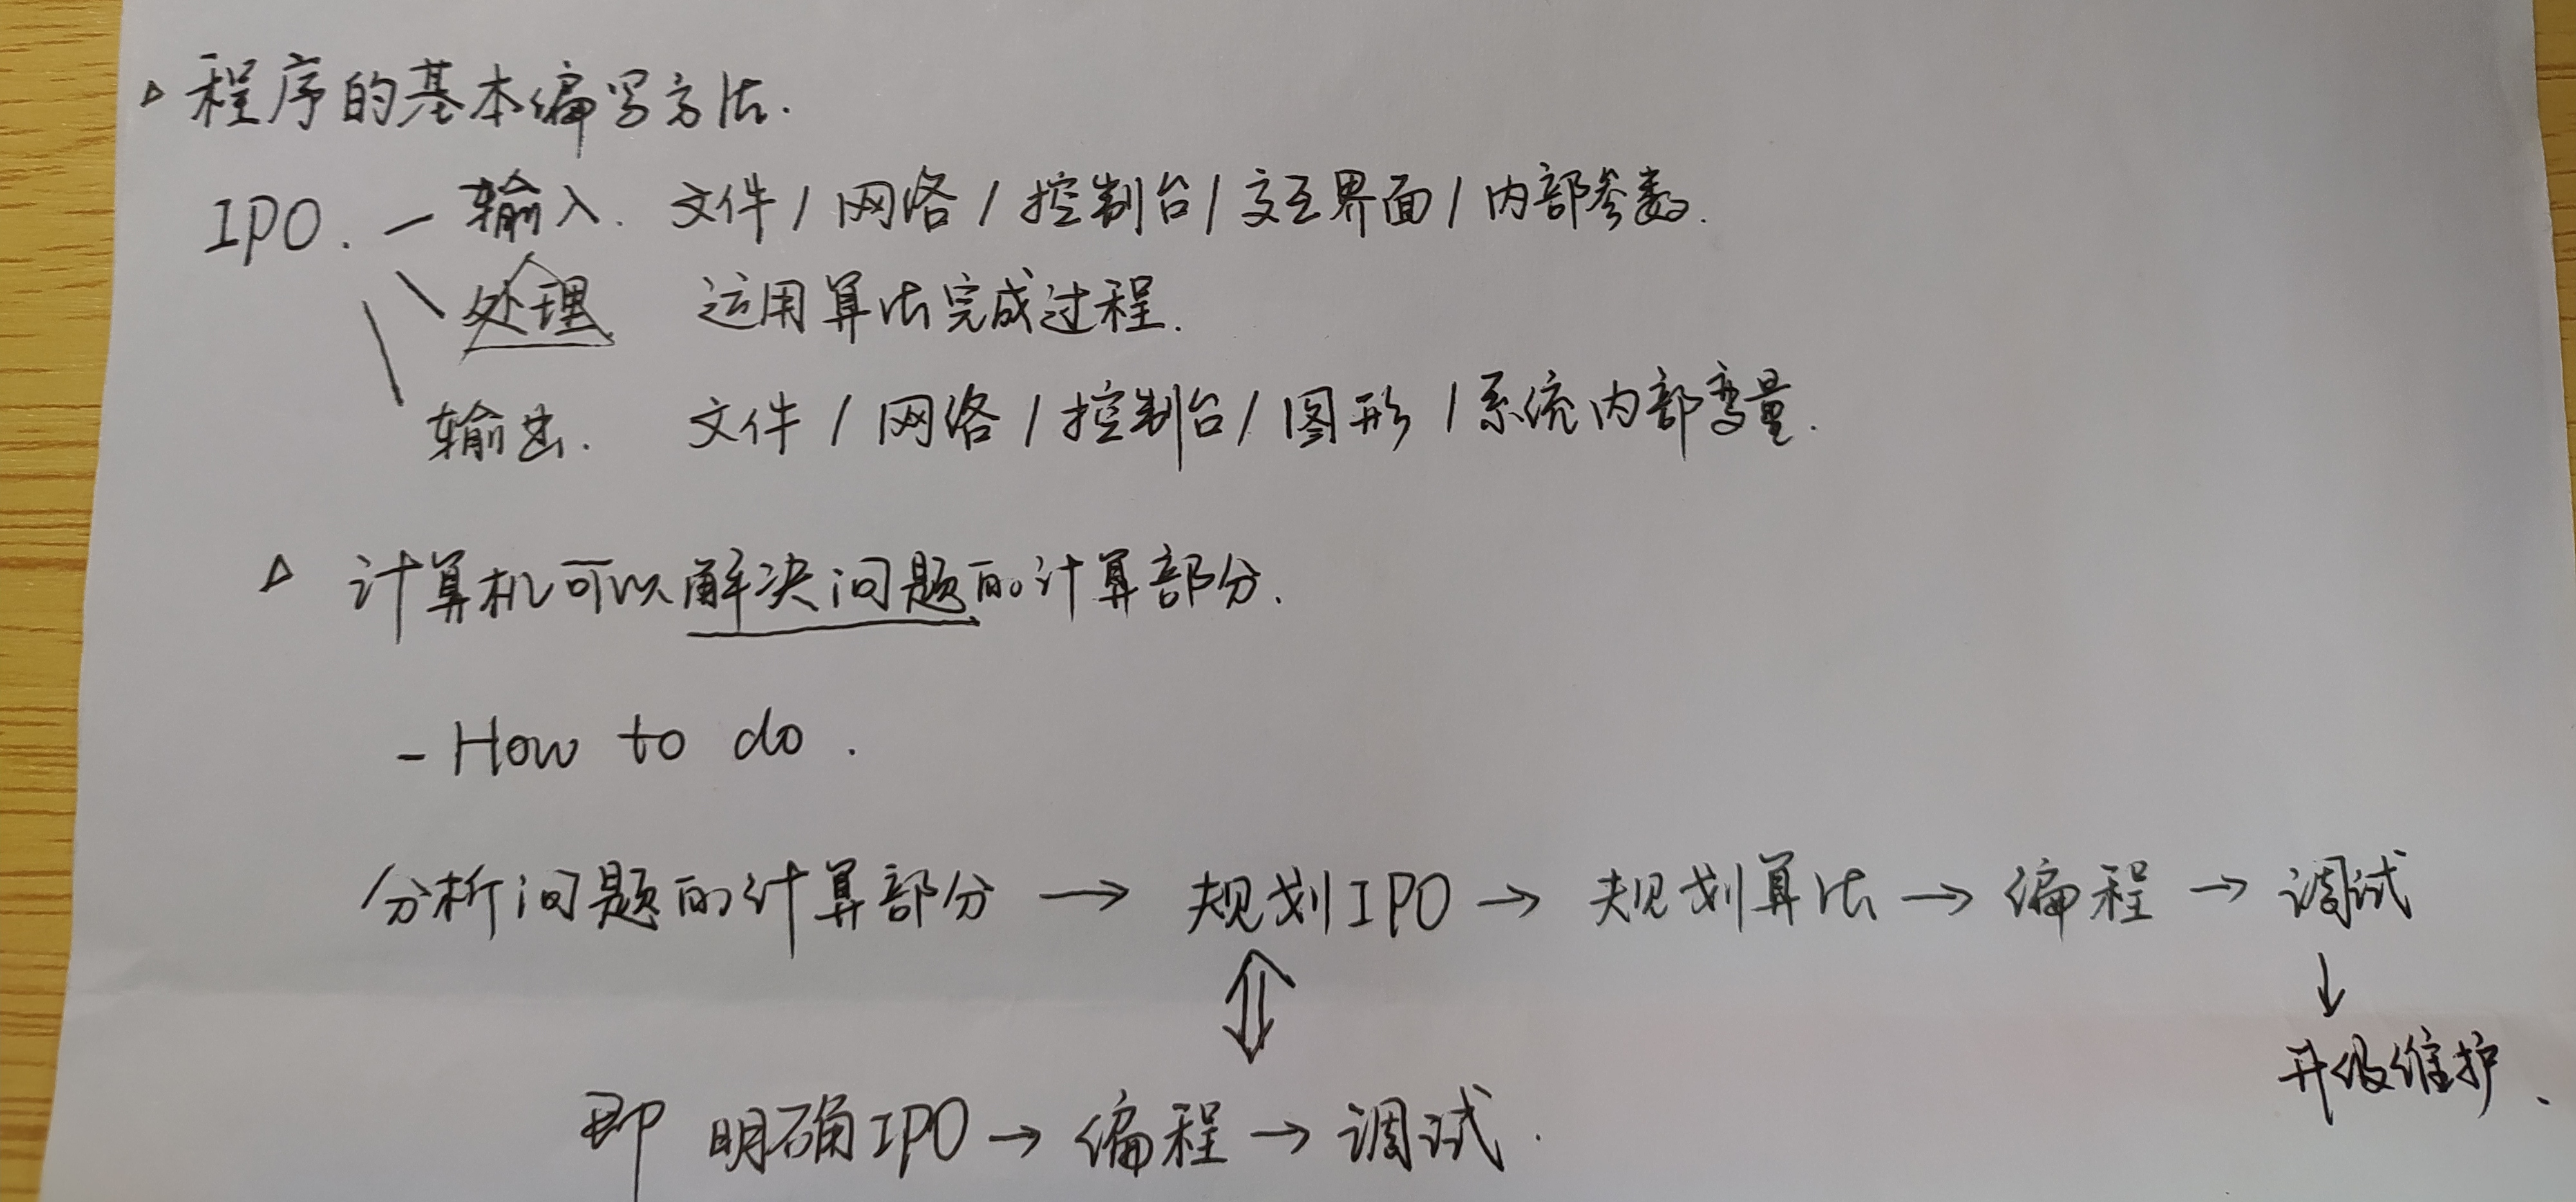 程序的基本编写方法.
IPO. - 输入. 文件 / 网络 / 控制台 / 交互界面 / 内部参数.
处理 运用算法完成过程.
输出. 文件 / 网络 / 控制台 / 图形 / 系统内部变量.
计算机可以解决问题的计算部分.
- How to do .
分析问题的计算部分 → 规划IPO → 规划算法 → 编程 → 调试
↓
⇕
升级维护.
即 明确IPO → 编程 → 调试.